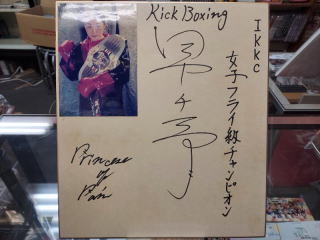 Kick Boxing
IKKC
女子フライ級チャンピオン
Princess
of
Pain